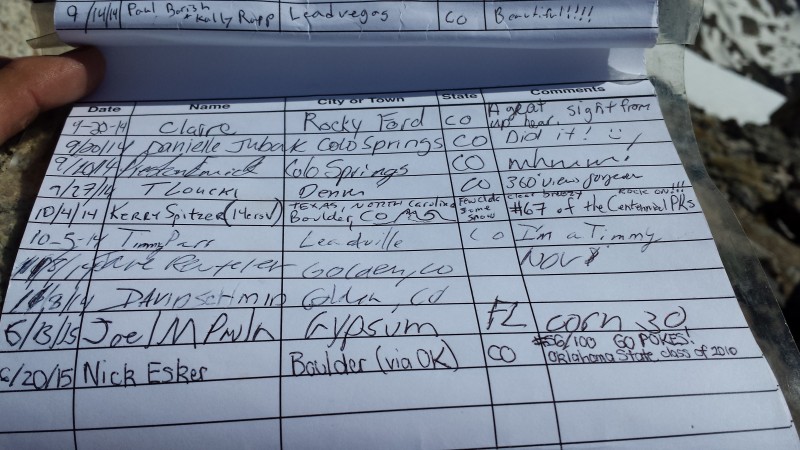 9/14/14 Paul Borish + Kally Rupp Leadvegas CO Beautiful!!!!
Date Name City or Town State Comments
9-20-14 Claire Rocky Ford CO A great sight from up hear.
9/20/14 Danielle Jubak Colo Springs CO Did it!
9/20/14 Colo Springs CO mhmm!
9/27/14 T Loucks Denver CO 360° view
10/4/14 KERRY Spitzer TEXAS, NORTH Carolina Boulder, CO Few Clds Some Snow clear breezy ROCK ON!!! #67 of the Centennial PRs
10-5-14 Timmy Parr Leadville CO I'm a Timmy
8/14 Golden, CO Nov
8/14 DAVID SCHMID Golden, CO
6/13/15 Joe Gypsum FL corn 30
6/20/15 Nick Esker Boulder (via OK) CO #56/100 GO POKES! Oklahoma State class of 2010